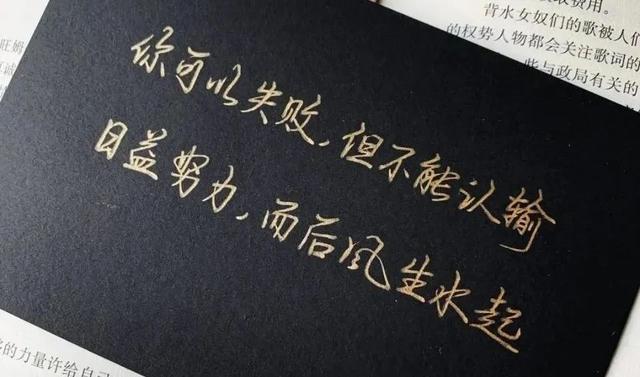 你可以失败，但不能认输
日益努力，而后风生水起
背水女奴们的歌被人们
的权势人物都会关注歌词的
些与政局有关的
的力量许给自己